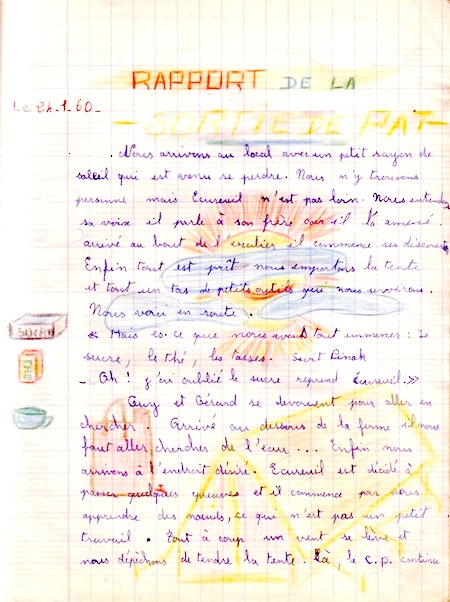 RAPPORT DE LA
Le 24_1_60_
- SORTIE DE PAT -
. Nous arrivons au local avec un petit rayon de
soleil qui est venu se perdre. Nous n'y trouvons
personne mais Ecureuil n'est pas loin. Nous entendons
sa voix il parle à son frère il l'a amené.
arrivé au bout de l'escalier il commence ses discours
Enfin tout est prêt nous emportons la tente
et tout un tas de petits outils qui nous serviront.
Nous voici en route.
« Mais es-ce que nous avons tout emmenes : le
sucre, le thé, les tasses. Sort Pinak
SUCRE
THÉ
- Oh ! j'ai oublié le sucre reprend Ecureuil. »
Guy et Gérard se devouent pour aller en
chercher. Arrivé au dessous de la ferme il nous
faut aller chercher de l'eau ... Enfin nous
arrivons à l'endroit désiré. Ecureuil est décidé à
passer quelques épreuves et il commence par nous
apprendre des nœuds, ce qui n'est pas un petit
travail. Tout à coup un vent se lève et
nous dépêchons de tendre la tente. Là, le C.P. continue